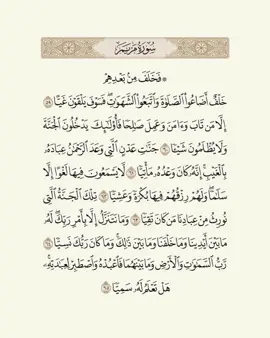 سُورَةُ مَرْيَمَ
۞ فَخَلَفَ مِنۢ بَعْدِهِمْ
خَلْفٌ أَضَاعُوا۟ ٱلصَّلَوٰةَ وَٱتَّبَعُوا۟ ٱلشَّهَوَٰتِ ۖ فَسَوْفَ يَلْقَوْنَ غَيًّا ۝٥٩
إِلَّا مَن تَابَ وَءَامَنَ وَعَمِلَ صَٰلِحًا فَأُو۟لَٰٓئِكَ يَدْخُلُونَ ٱلْجَنَّةَ
وَلَا يُظْلَمُونَ شَيْـًٔا ۝٦٠ جَنَّٰتِ عَدْنٍ ٱلَّتِى وَعَدَ ٱلرَّحْمَٰنُ عِبَادَهُۥ
بِٱلْغَيْبِ ۚ إِنَّهُۥ كَانَ وَعْدُهُۥ مَأْتِيًّا ۝٦١ لَّا يَسْمَعُونَ فِيهَا لَغْوًا إِلَّا
سَلَٰمًا ۖ وَلَهُمْ رِزْقُهُمْ فِيهَا بُكْرَةً وَعَشِيًّا ۝٦٢ تِلْكَ ٱلْجَنَّةُ ٱلَّتِى
نُورِثُ مِنْ عِبَادِنَا مَن كَانَ تَقِيًّا ۝٦٣ وَمَا نَتَنَزَّلُ إِلَّا بِأَمْرِ رَبِّكَ ۖ لَهُۥ
مَا بَيْنَ أَيْدِينَا وَمَا خَلْفَنَا وَمَا بَيْنَ ذَٰلِكَ ۚ وَمَا كَانَ رَبُّكَ نَسِيًّا ۝٦٤
رَّبُّ ٱلسَّمَٰوَٰتِ وَٱلْأَرْضِ وَمَا بَيْنَهُمَا فَٱعْبُدْهُ وَٱصْطَبِرْ لِعِبَٰدَتِهِۦ ۚ
هَلْ تَعْلَمُ لَهُۥ سَمِيًّا ۝٦٥